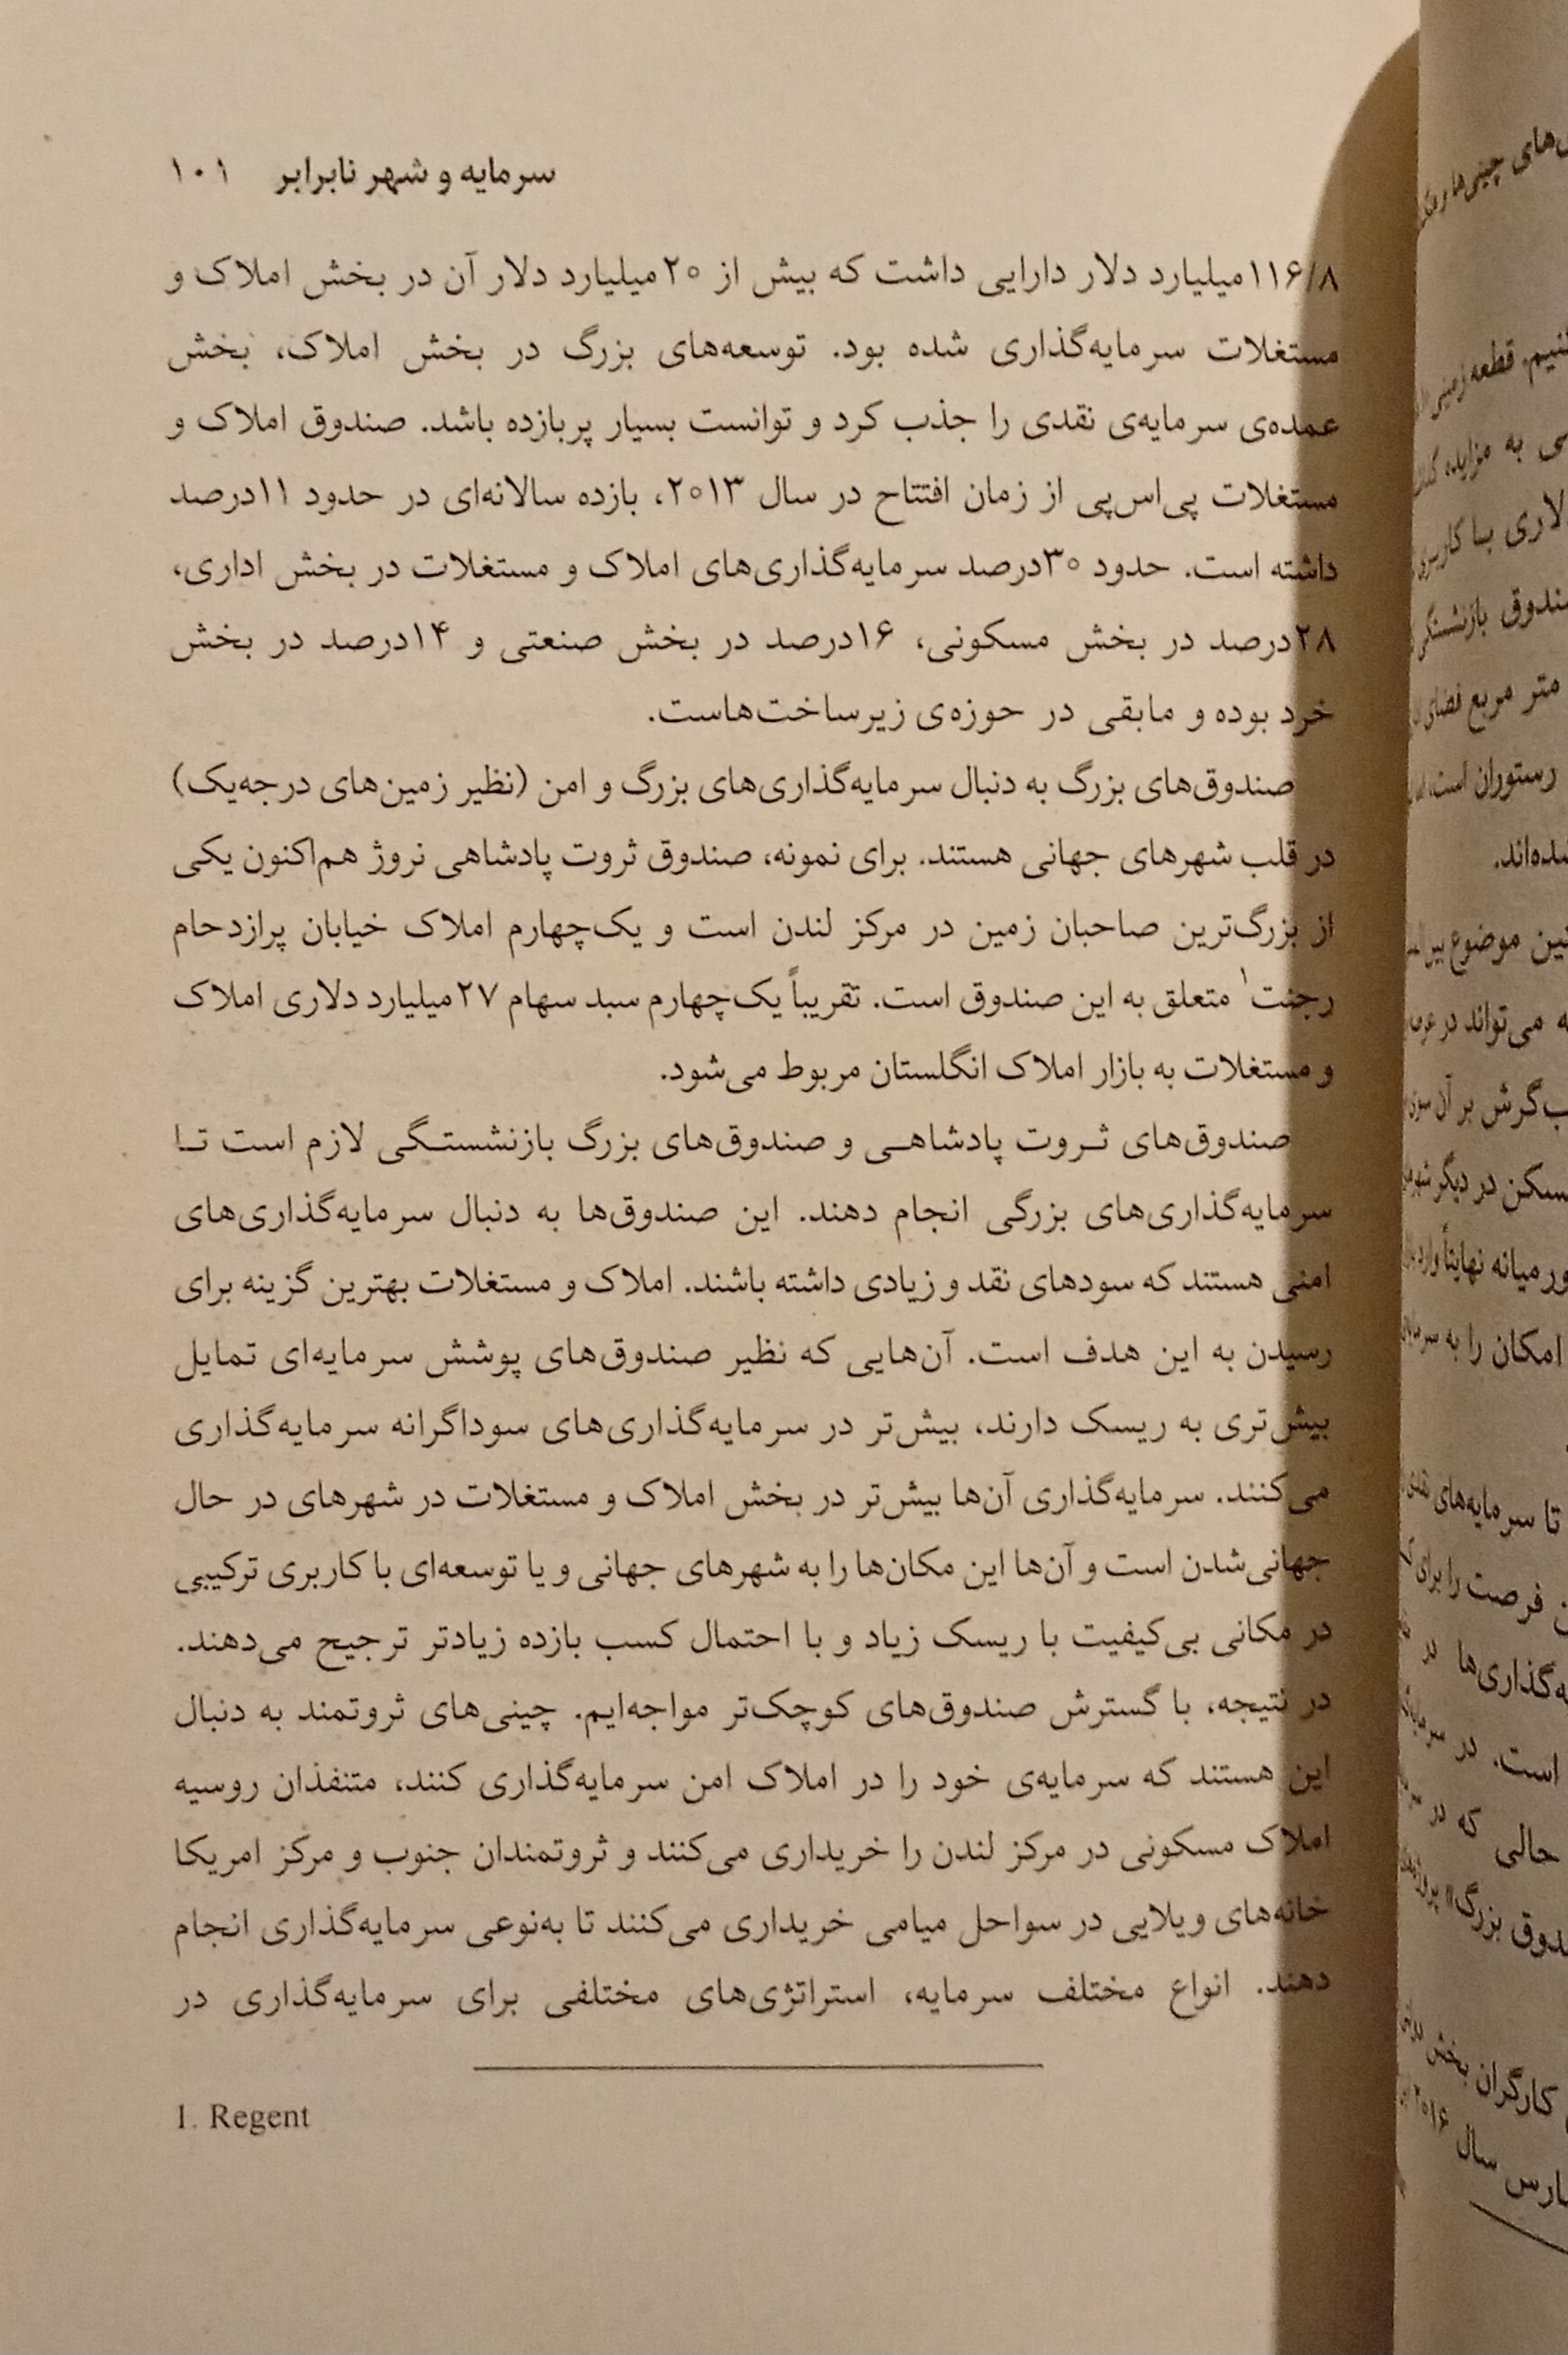 سرمایه و شهر نابرابر ۱۰۱
۱۱۶/۸ میلیارد دلار دارایی داشت که بیش از ۲۰ میلیارد دلار آن در بخش املاک و
مستغلات سرمایه‌گذاری شده بود. توسعه‌های بزرگ در بخش املاک، بخش
عمده‌ی سرمایه‌ی نقدی را جذب کرد و توانست بسیار پربازده باشد. صندوق املاک و
مستغلات پی‌اس‌پی از زمان افتتاح در سال ۲۰۱۳، بازده سالانه‌ای در حدود ۱۱درصد
داشته است. حدود ۳۰درصد سرمایه‌گذاری‌های املاک و مستغلات در بخش اداری،
۲۸درصد در بخش مسکونی، ۱۶درصد در بخش صنعتی و ۱۴درصد در بخش
خرد بوده و مابقی در حوزه‌ی زیرساخت‌هاست.
صندوق‌های بزرگ به دنبال سرمایه‌گذاری‌های بزرگ و امن (نظیر زمین‌های درجه‌یک)
در قلب شهرهای جهانی هستند. برای نمونه، صندوق ثروت پادشاهی نروژ هم‌اکنون یکی
از بزرگ‌ترین صاحبان زمین در مرکز لندن است و یک‌چهارم املاک خیابان پرازدحام
رجنت۱ متعلق به این صندوق است. تقریباً یک‌چهارم سبد سهام ۲۷میلیارد دلاری املاک
و مستغلات به بازار املاک انگلستان مربوط می‌شود.
صندوق‌های ثروت پادشاهی و صندوق‌های بزرگ بازنشستگی لازم است تا
سرمایه‌گذاری‌های بزرگی انجام دهند. این صندوق‌ها به دنبال سرمایه‌گذاری‌های
امنی هستند که سودهای نقد و زیادی داشته باشند. املاک و مستغلات بهترین گزینه برای
رسیدن به این هدف است. آن‌هایی که نظیر صندوق‌های پوشش سرمایه‌ای تمایل
بیش‌تری به ریسک دارند، بیش‌تر در سرمایه‌گذاری‌های سوداگرانه سرمایه‌گذاری
می‌کنند. سرمایه‌گذاری آن‌ها بیش‌تر در بخش املاک و مستغلات در شهرهای در حال
جهانی‌شدن است و آن‌ها این مکان‌ها را به شهرهای جهانی و یا توسعه‌ای با کاربری ترکیبی
در مکانی بی‌کیفیت با ریسک زیاد و با احتمال کسب بازده زیادتر ترجیح می‌دهند.
در نتیجه، با گسترش صندوق‌های کوچک‌تر مواجه‌ایم. چینی‌های ثروتمند به دنبال
این هستند که سرمایه‌ی خود را در املاک امن سرمایه‌گذاری کنند، متنفذان روسیه
املاک مسکونی در مرکز لندن را خریداری می‌کنند و ثروتمندان جنوب و مرکز امریکا
خانه‌های ویلایی در سواحل میامی خریداری می‌کنند تا به‌نوعی سرمایه‌گذاری انجام
دهند. انواع مختلف سرمایه، استراتژی‌های مختلفی برای سرمایه‌گذاری در
1. Regent
قطعه زمینی
به مزایده
لاری با کاربری
بازنشستگی
متر مربع فضای
رستوران است
موضوع
می‌تواند در
بر آن
در دیگر
نهایتاً
امکان را به
تا سرمایه‌های
فرصت را برای
در
است. در
حالی که در
بزرگ»
کارگران بخش
سال ۲۰۱۶